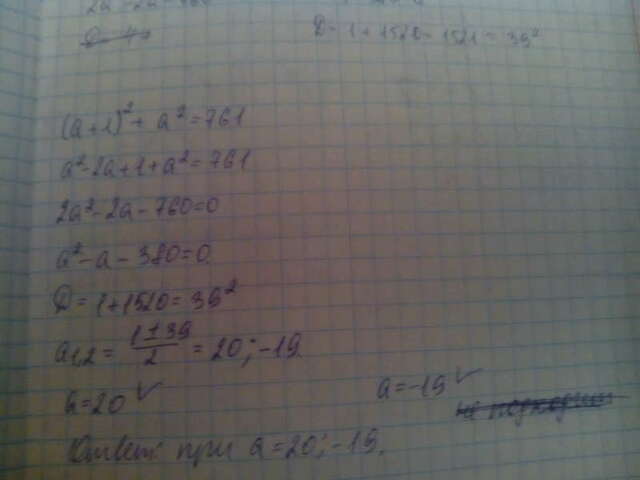 D = 1 + 1520 = 1521 = 39²
(a+1)² + a² = 761
a² - 2a + 1 + a² = 761
2a² - 2a - 760 = 0
a² - a - 380 = 0
D = 1 + 1520 = 39²
a₁,₂ = (1 ± 39)/2 = 20; -19.
a = 20 ✓ a = -19 ✓
не подходит
Ответ: при a = 20; -19.